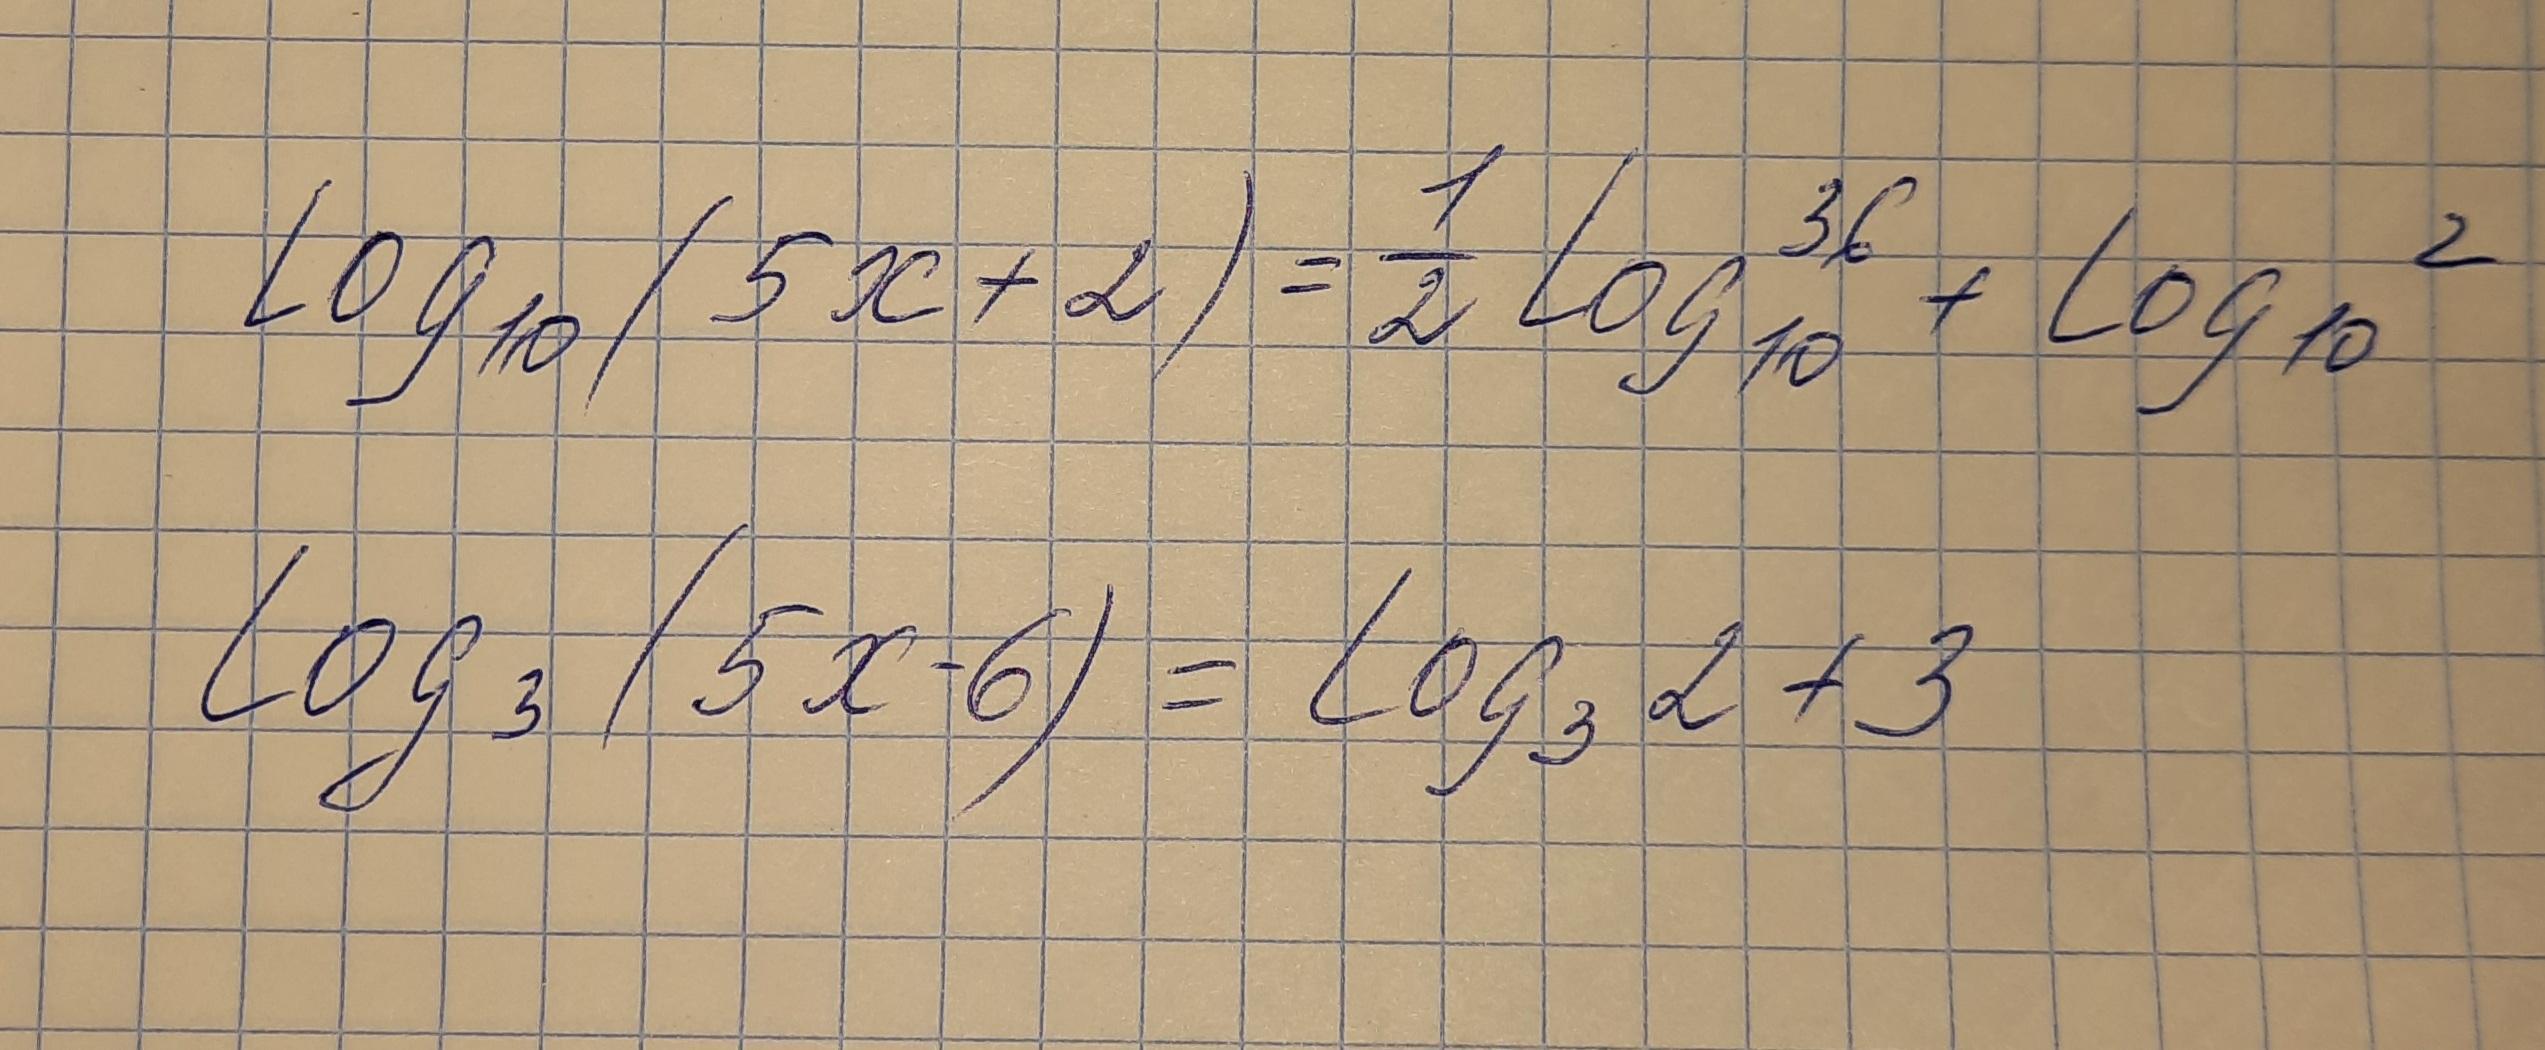 Log₁₀(5x+2) = 1/2 Log₁₀³⁶ + Log₁₀²
Log₃(5x-6) = Log₃2+3